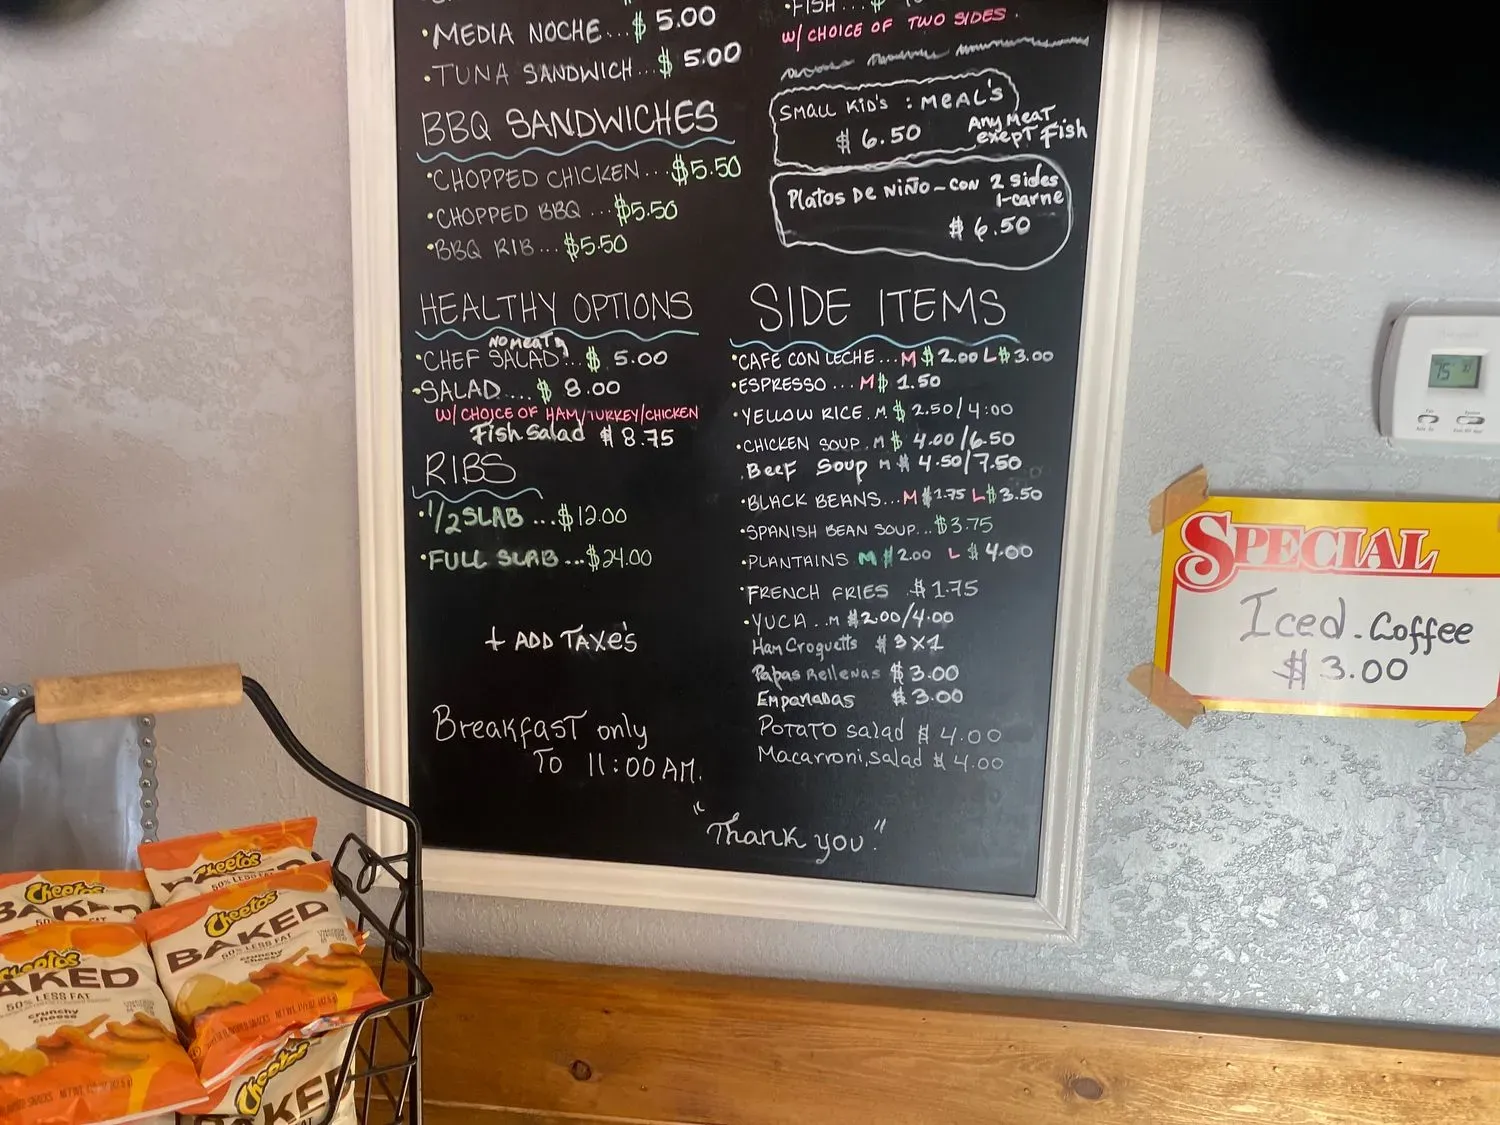 • MEDIA NOCHE... $ 5.00
• TUNA SANDWICH... $ 5.00
BBQ SANDWICHES
• CHOPPED CHICKEN... $5.50
• CHOPPED BBQ ... $5.50
• BBQ RIB... $5.50
HEALTHY OPTIONS
NO MEAT
• CHEF SALAD... $ 5.00
• SALAD.... $ 8.00
W/ CHOICE OF HAM/TURKEY/CHICKEN
Fish Salad $ 8.75
RIBS
• 1/2 SLAB ...$12.00
• FULL SLAB ...$24.00
+ ADD TAXE'S
Breakfast only
To 11:00 AM.
• FISH... $
W/ CHOICE OF TWO SIDES.
SMALL KID'S : MEAL'S
$ 6.50
ANY MEAT
exepT Fish
Platos DE NIÑO - CON 2 Sides
1-carne
$ 6.50
SIDE ITEMS
• CAFE CON LECHE ... M $2.00 L $3.00
• ESPRESSO ... M $ 1.50
• YELLOW RICE. M $ 2.50/4:00
• CHICKEN SOUP. M $ 4.00/6.50
. BEEF SOUP M $ 4.50/7.50
• BLACK BEANS... M $1.75 L $3.50
• SPANISH BEAN SOUP... $3.75
• PLANTAINS M $2.00 L $ 4.00
• FRENCH FRIES $1.75
• YUCA .. M $2.00/4.00
Ham Croquetts $ 3X1
Papas Rellenas $ 3.00
Empanadas $ 3.00
POTATO salad $ 4.00
Macarroni, salad $ 4.00
"Thank you."
SPECIAL
Iced - Coffee
$ 3.00
75
Cheetos
50% LESS FAT
Cheetos
BAKED
Cheetos
BAKED
50% LESS FAT
crunchy
cheese
Cheetos
BAKED
50% LESS FAT
crunchy
cheese
Cheetos
BAKED